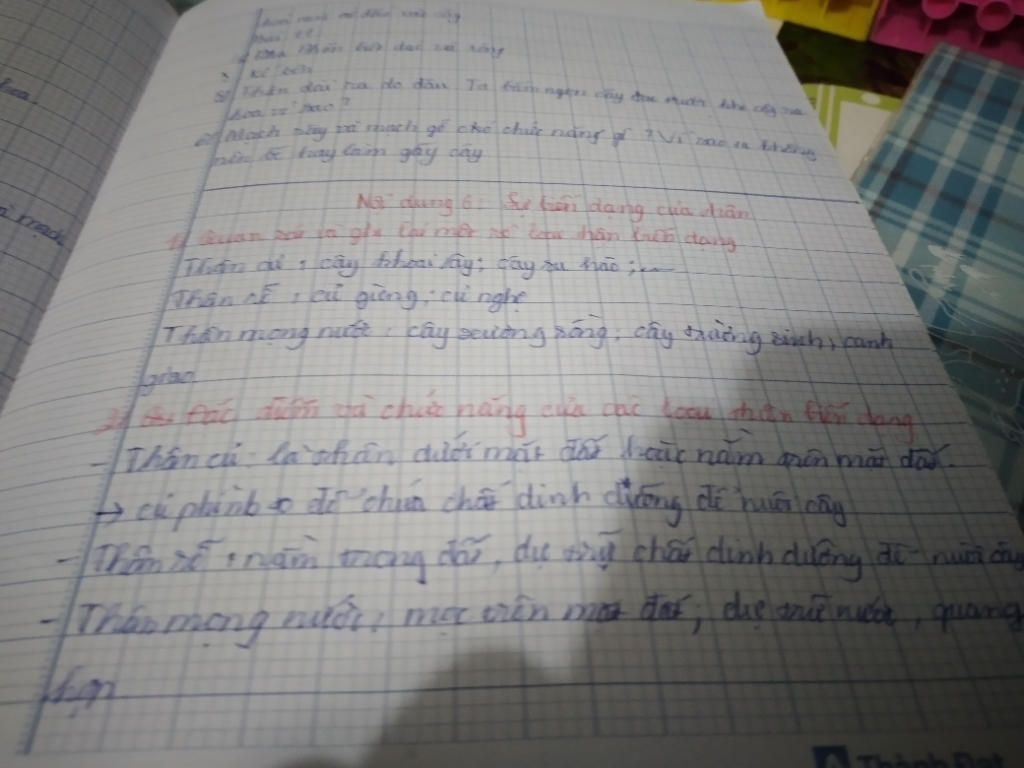 hoa
mạch
Thân dài ra do đâu Ta bấm ngọn cây khi cây ra
hoa
Mạch rây và mạch gỗ có chức năng gì ? Vì sao ta không
nên bẻ hay làm gãy cây
Nội dung 6: Sự biến dạng của thân
1) Quan sát và ghi lại một số loại thân biến dạng
Thân củ : cây khoai tây; cây su hào ;
Thân rễ : củ gừng; củ nghệ
Thân mọng nước : cây xương rồng; cây trường sinh, cành
giao
2) Đặc điểm và chức năng của các loại thân biến dạng
- Thân củ: là thân dưới mặt đất hoặc nằm trên mặt đất.
→ củ phình to để chứa chất dinh dưỡng để nuôi cây
- Thân rễ : nằm trong đất, dự trữ chất dinh dưỡng để nuôi cây
- Thân mọng nước: mọc trên mặt đất; dự trữ nước, quang
hợp
Thành Đạt